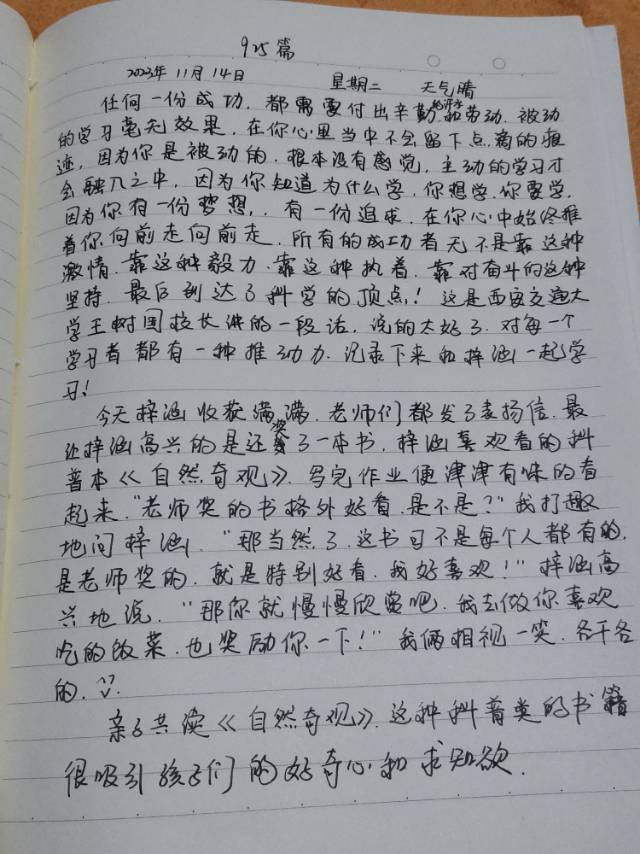 925篇
2023年11月14日 星期二 天气晴
任何一份成功，都需要付出辛勤的汗水和劳动，被动
的学习毫无效果，在你心里当中不会留下点滴的痕
迹，因为你是被动的，根本没有感觉，主动的学习才
会融入之中，因为你知道为什么学，你想学，你要学，
因为你有一份梦想，有一份追求，在你心中始终推
着你向前走向前走，所有的成功者无不是靠这种
激情，靠这种毅力，靠这种执着，靠对奋斗的这种
坚持，最后到达了科学的顶点！这是西安交通大
学王树国校长讲的一段话，说的太好了，对每一个
学习者都有一种推动力，记录下来和梓涵一起学
习！
今天梓涵收获满满，老师们都发了表扬信，最
让梓涵高兴的是还奖了一本书，梓涵喜欢看的科
普本《自然奇观》，写完作业便津津有味的看
起来，“老师奖的书格外好看，是不是？”我打趣
地问梓涵，“那当然了，这书可不是每个人都有的，
是老师奖的，就是特别好看，我好喜欢！”梓涵高
兴地说，“那你就慢慢欣赏吧，我去做你喜欢
吃的饭菜，也奖励你一下！”我俩相视一笑，各干各
的，
亲子共读《自然奇观》，这种科普类的书籍
很吸引孩子们的好奇心和求知欲．